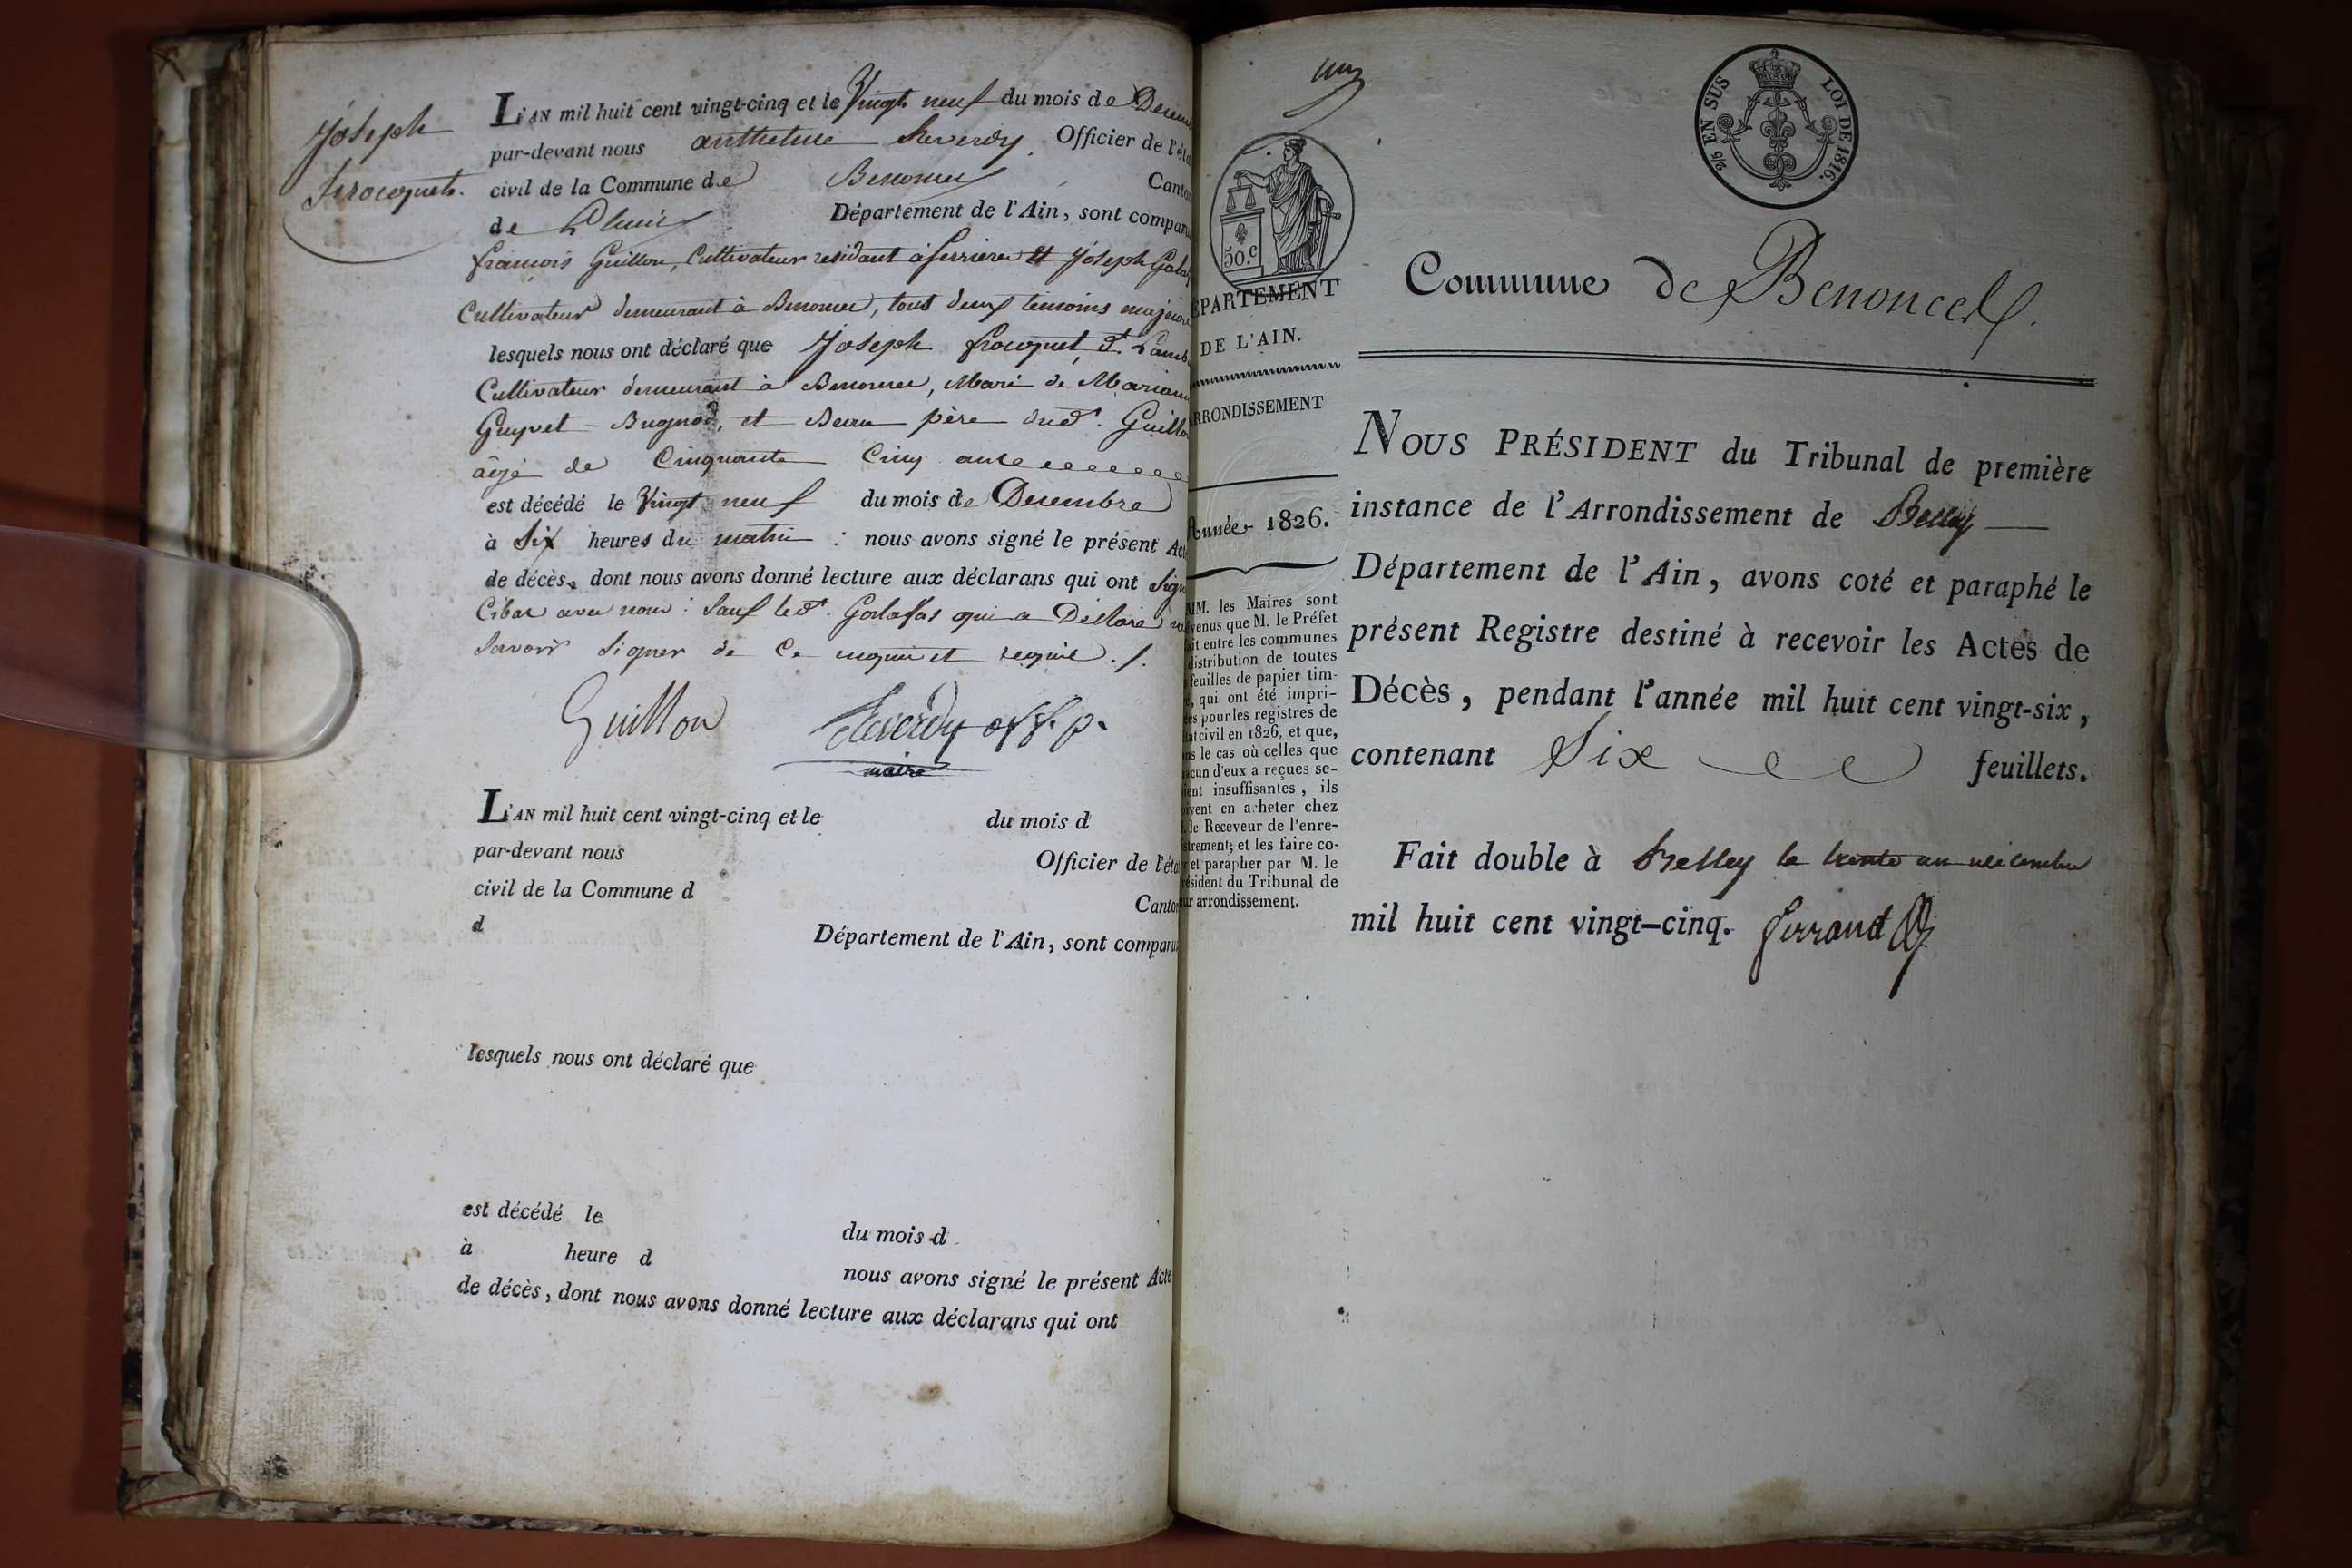 Joseph
frocquet.
L'AN mil huit cent vingt-cinq et le Vingt neuf du mois de Decem
par-devant nous anthelme Reverdy Officier de l'éta
civil de la Commune de Benonce Canton
de Lhuis Département de l'Ain, sont comparu
françois Guillon, Cultivateur residant à ferriere et Joseph
Cultivateur demeurant à Benonce, tous deux temoins majeurs
lesquels nous ont déclaré que Joseph frocquet
Cultivateur demeurant à Benonce, Mari de
Guyvet Bugnod, et Beau père dud. Guillo
âgé de Cinquante Cinq ans
est décédé le Vingt neuf du mois de Decembre
à Six heures du matin : nous avons signé le présent Act
de décès, dont nous avons donné lecture aux déclarans qui ont sign
avec nous : Sauf led. qui a Déclaré
Savoir Signer de Ce enquis et requis ./.
Guillon Reverdy off. p.
maire
L'AN mil huit cent vingt-cinq et le du mois d
par-devant nous Officier de l'éta
civil de la Commune d Canton
d Département de l'Ain, sont comparu
lesquels nous ont déclaré que
est décédé le du mois d
à heure d nous avons signé le présent Acte
de décès, dont nous avons donné lecture aux déclarans qui ont
2/5 EN SUS LOI DE 1816.
50.c
ÉPARTEMENT
DE L'AIN.
RRONDISSEMENT
Année 1826.
MM. les Maires sont
venus que M. le Préfet
ait entre les communes
distribution de toutes
feuilles de papier tim-
é, qui ont été impri-
es pour les registres de
tat civil en 1826, et que,
ns le cas où celles que
acun d'eux a reçues se-
ient insuffisantes, ils
oivent en acheter chez
. le Receveur de l'enre-
strement, et les faire co-
r et parapher par M. le
résident du Tribunal de
eur arrondissement.
Commune de Benonce
NOUS PRÉSIDENT du Tribunal de première
instance de l'Arrondissement de Belley
Département de l'Ain, avons coté et paraphé le
présent Registre destiné à recevoir les Actes de
Décès, pendant l'année mil huit cent vingt-six,
contenant Six feuillets.
Fait double à Belley le trente un décembre
mil huit cent vingt-cinq. ferrand